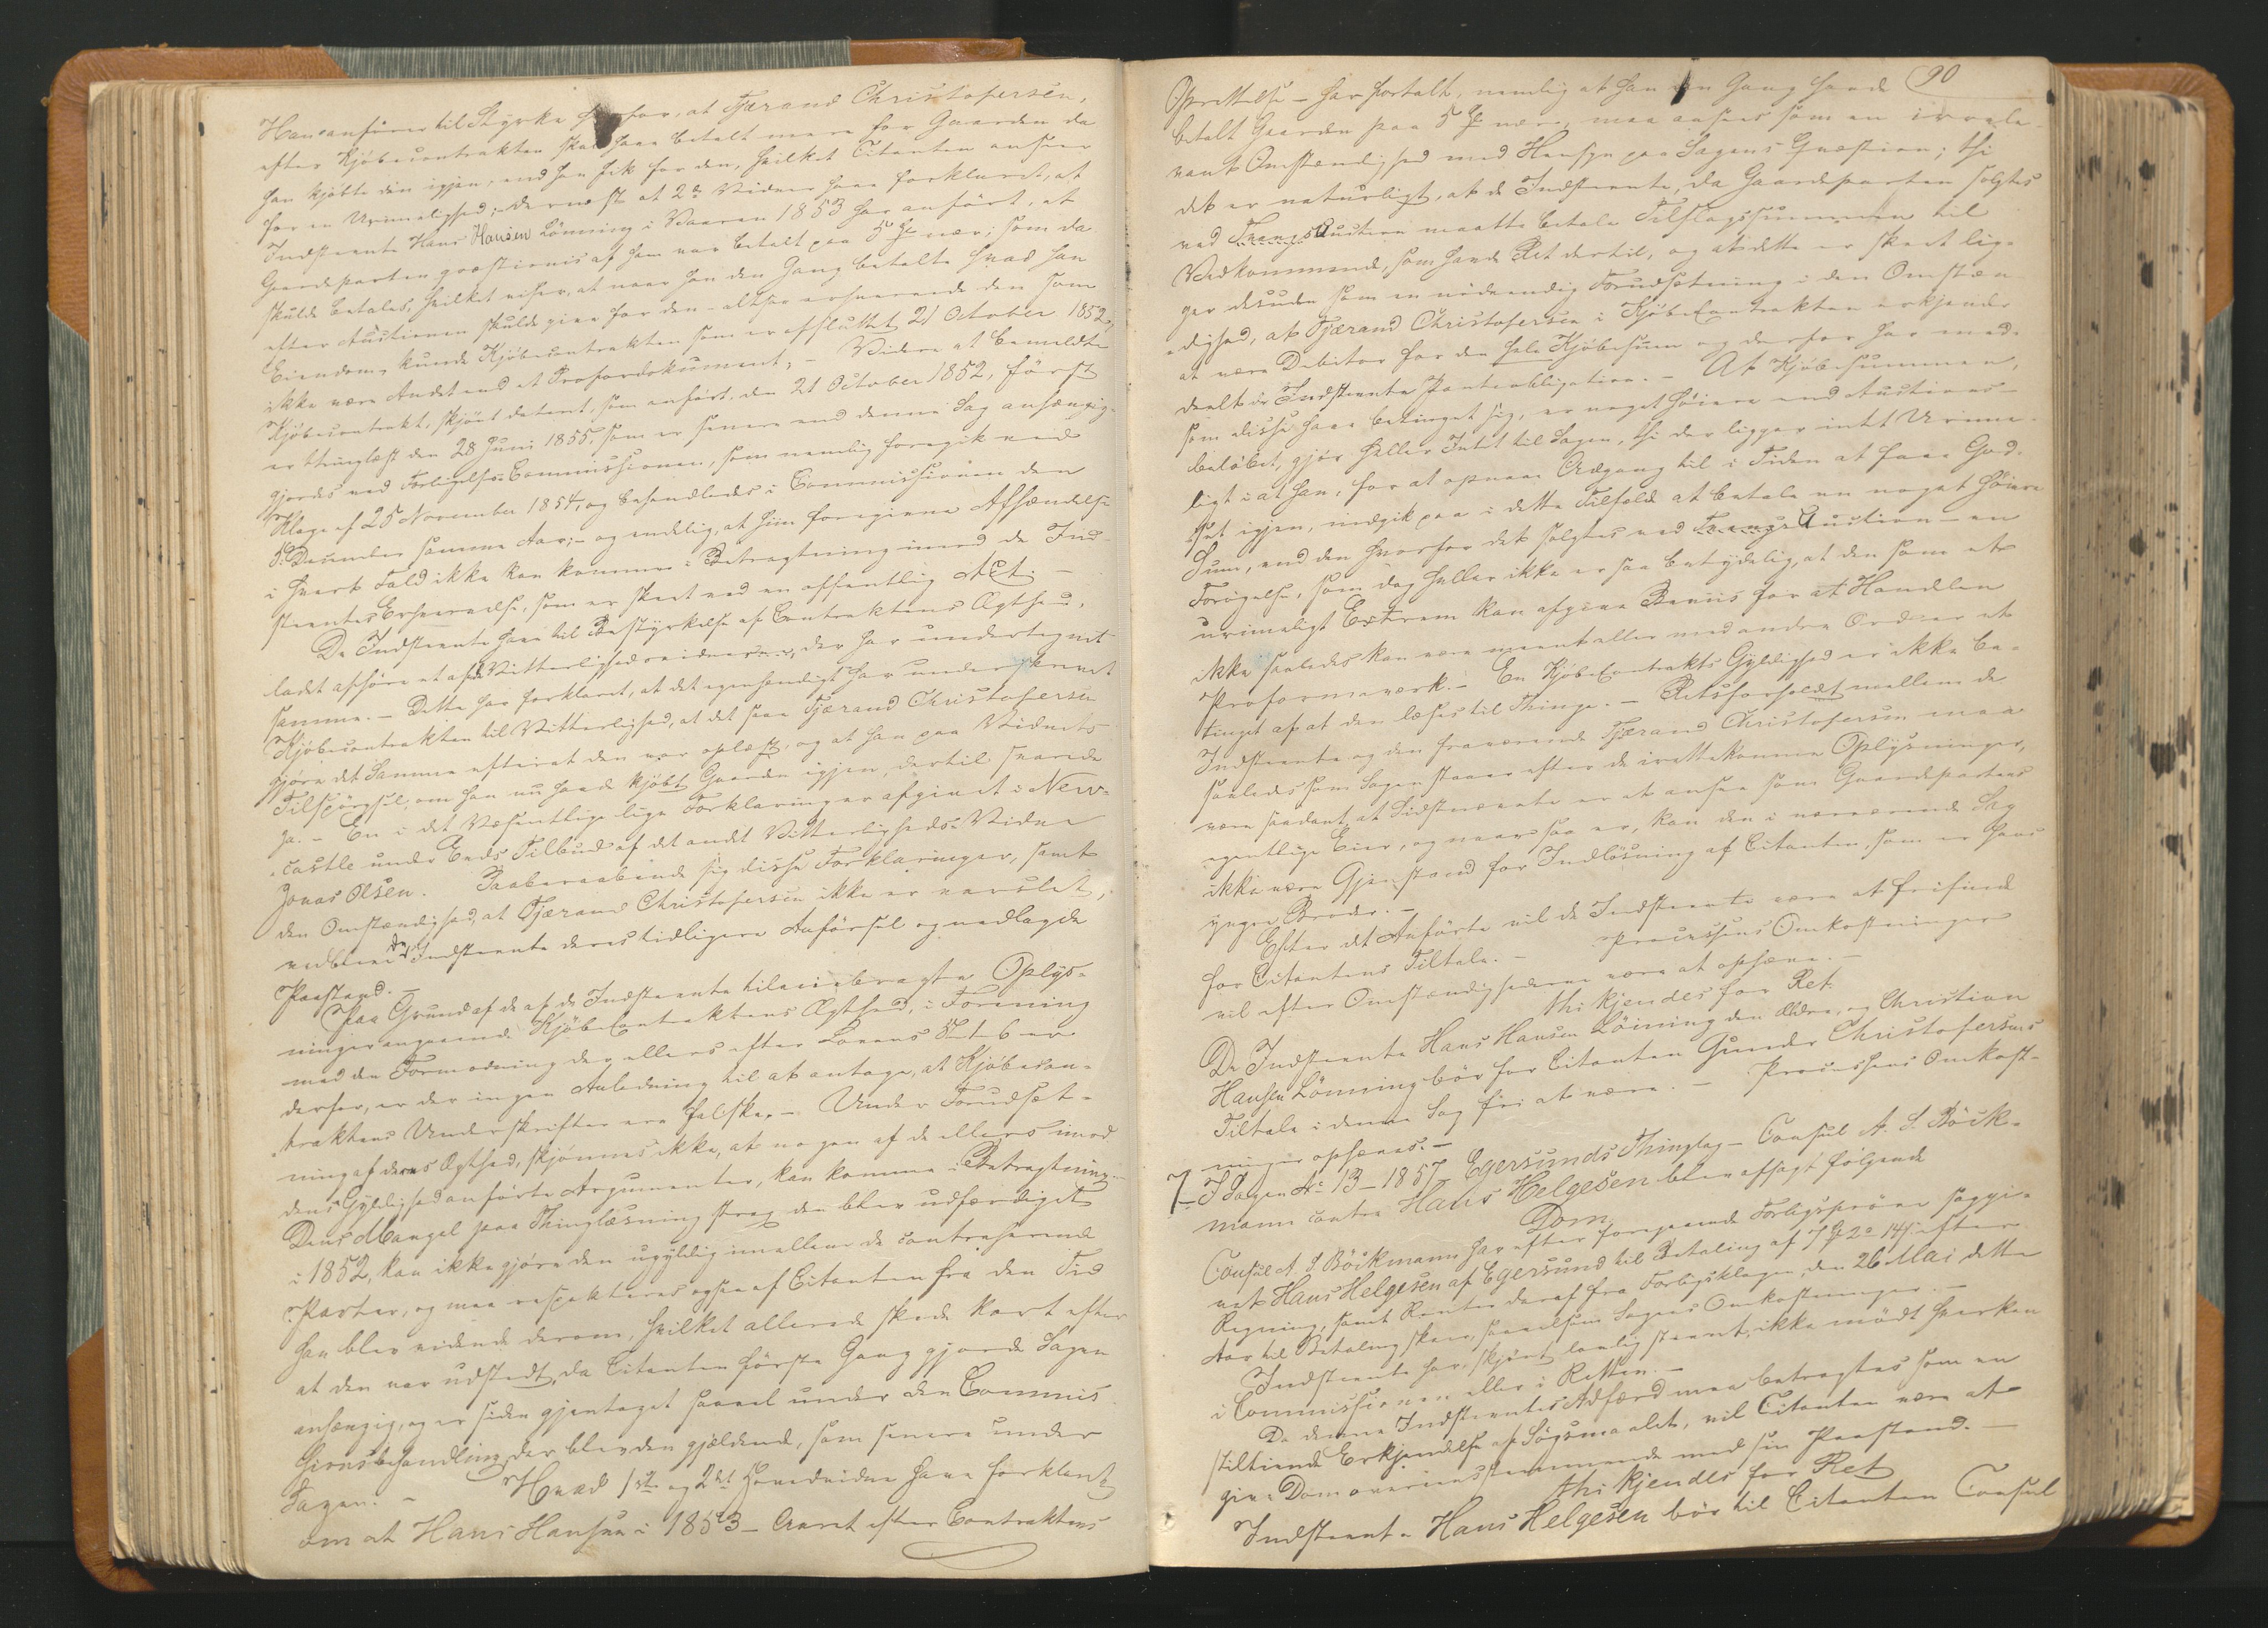 Han anfører til Styrke herfor, at Tjærand Christofersen,
efter Kjöbecontrakten skal have betalt mere for Gaarden da
han kjöbte den igjen, end han fik for den, hvilket Citanten anseer
for en Urimelighed; dernæst at 2de Vidner have forklaret, at
Indstevnte Hans Hansen Lönning i Vaaren 1853 har anfört, at
Gaardeparten qvæstionis af ham var betalt paa 5 Spd nær; som da
skulde betales, hvilket viser, at naar han den Gang betalte hvad han
efter Auctionen skulde give for den - altsaa erhvervede den som
Eiendom, kunde Kjöbecontrakten som er afsluttet 21 October 1852
ikke være Andet end et Proformadokument; - Videre at bemeldte
Kjöbecontrakt, skjönt dateret, som anfört, den 21 October 1852, först
er thinglæst den 28 Juni 1855, som er senere end denne Sag anhængig-
gjordes ved Forligelses-Commissionen, som nemlig foregik ved
Klage af 25 November 1854, og behandledes i Commissionen den
5 December samme Aar; - og endelig, at hiin foregivne Afhændelse
i hvert Fald ikke kan komme i Betragtning imod de Ind-
stevntes Erhvervelse, som er skeet ved en offentlig Act. -
De Indstevnte have til Bestyrkelse af Contraktens Ægthed,
ladet afhöre et af Vitterlighedsvidnerne, der har undertegnet
samme. - Dette har forklaret, at det egenhændigt har underskrevet
Kjöbecontrakten til Vitterlighed, at det saae Tjærand Christofersen
gjöre det Samme efterat den var oplæst, og at han paa Vidnets
Tilspörgsel, om han nu havde kjöbt Gaarden igjen, dertil svarede
ja. - En i det Væsentlige lige Forklaring er afgivet i New-
castle under Eeds Tilbud af det andet Vitterligheds-Vidne
Jonas Olsen. Paaberaabende sig disse Forklaringer, samt
den Omstændighed, at Tjærand Christofersen ikke er varslet,
vedbleve de Indstevnte deres tidligere Anförsel og nedlagde
Paastand. -
Paa Grund af de af de Indstevnte tilveiebragte Oplys-
ninger angaaende Kjöbecontraktens Ægthed, i Forening
med den Formodning der ellers efter Lovens 5-1-6 er
derfor, er der ingen Anledning til at antage, at Kjöbecon-
traktens Underskrifter ere falske. - Under Forudsæt-
ning af deres Ægthed, skjönnes ikke, at nogen af de ellers imod
dens Gyldighed anförte Argumenter, kan komme i Betragtning.
Dens Mangel paa Thinglæsning strax den blev udfærdiget
i 1852, kan ikke gjöre den ugyldig imellem de contraherende
Parter, og maa respekteres ogsaa af Citanten fra den Tid
han blev vidende derom, hvilket allerede skede kort efter
at den var udstedt, da Citanten förste Gang gjorde Sagen
anhængig, og er siden gjentaget saavel under den Commis-
sionsbehandling der blev den gjældende, som senere under
Sagen. - Hvad 1ste og 2det Hovedvidne have forklaret
om at Hans Hansen i 1853 - Aaret efter Contraktens
90
Oprettelse - har fortalt, nemlig at han den Gang havde
betalt Gaarden paa 5 Spd nær, maa ansees som en irrele-
vant Omstændighed med Hensyn paa Sagens Qvæstion; thi
det er naturligt, at de Indstevnte, da Gaardeparten solgtes
ved TvangsAuction maatte betale Tilslagssummen til
Vedkommende, som havde Ret dertil, og at dette er skeet lig-
ger desuden som en nödvendig Forudsætning i den Omstæn-
dighed, at Tjærand Christofersen i Kjöbecontrakten erkjender
at være Debitor for den hele Kjöbesum og derfor har med-
deelt de Indstevnte Panteobligation. - At Kjöbesummen,
som disse have betinget sig, er noget höiere end Auctions-
belöbet, gjör heller Intet til Sagen, thi der ligger intet Urime-
ligt i at han, for at opnaae Adgang til i Tiden at faae God-
set igjen, indgik paa i dette Tilfælde at betale en noget höiere
Sum, end den hvorfor det solgtes ved TvangsAuction - en
Forögelse, som dog heller ikke er saa betydelig, at den som et
urimeligt Extrem kan afgive Beviis for at Handlen
ikke saaledes kan være meent eller med andre Ord er et
Proformaværk. - En Kjöbecontrakts Gyldighed er ikke be-
tinget af at den læses til Thinge. - Retsforholdet mellem de
Indstevnte og den fraværende Tjærand Christofersen maa
saaledes som Sagen staaer efter de irettekomne Oplysninger,
være saadant, at Sidstnævnte er at ansee som Gaardepartens
egentlige Eier, og naar saa er, kan den i nærværende Sag
ikke være Gjenstand for Indlösning af Citanten, som er hans
yngre Broder. -
Efter det Anförte vil de Indstevnte være at frifinde
for Citantens Tiltale. - Processens Omkostninger
vil efter Omstændighederne være at ophæve. -
Thi kjendes for Ret:
De Indstevnte Hans Hansen Löining den ældre, og Christian
Hansen Lönning bör for Citanten Gunder Christofersens
Tiltale i denne Sag fri at være. - Processens Omkost-
ninger ophæves. -
7- I Sagen No 13-1857 Egersunds Thinglag - Consul A. S. Böck-
mann contra Hans Helgesen blev afsagt fölgende
Dom.
Consul A. S. Böckmann har efter foregaaende Forligspröve saggi-
vet Hans Helgesen af Egersund til Betaling af 7 Spd 2 14 efter
Regning, samt Renter deraf fra Forligsklagen, den 26 Mai dette
Aar til Betaling skeer, saavelsom Sagens Omkostninger. -
Indstevnte har, skjönt lovlig stevnt, ikke mödt hverken
i Commissionen eller i Retten. -
Da denne Indstevntes Adfærd maa betragtes som en
stiltiende Erkjendelse af Sögsmaalet, vil Citanten være at
give Dom overensstemmende med sin Paastand. -
Thi kjendes for Ret
Indstevnte Hans Helgesen bör til Citanten Consul